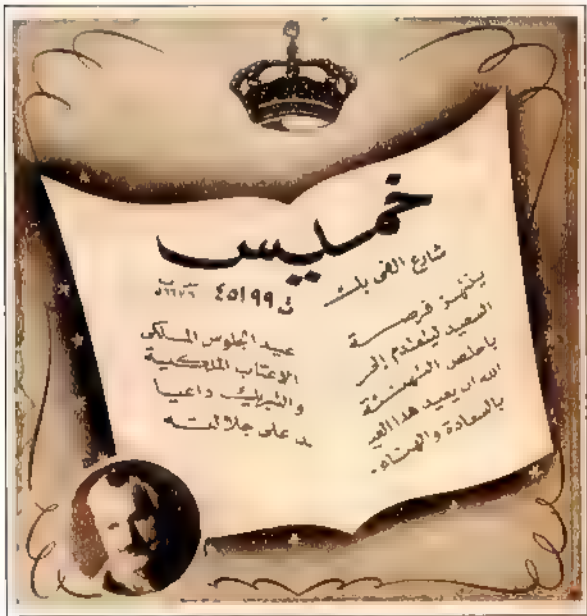 خميس
شارع الفى بك
ت ٤٥١٩٩
ينتهز فرصة عيد الجلوس الملكى
السعيد ليتقدم إلى الأعتاب الملكية
بأخلص التهنئة والتبريك داعيا
الله ان يعيد هذا العيد على جلالته
بالسعادة والهناء.